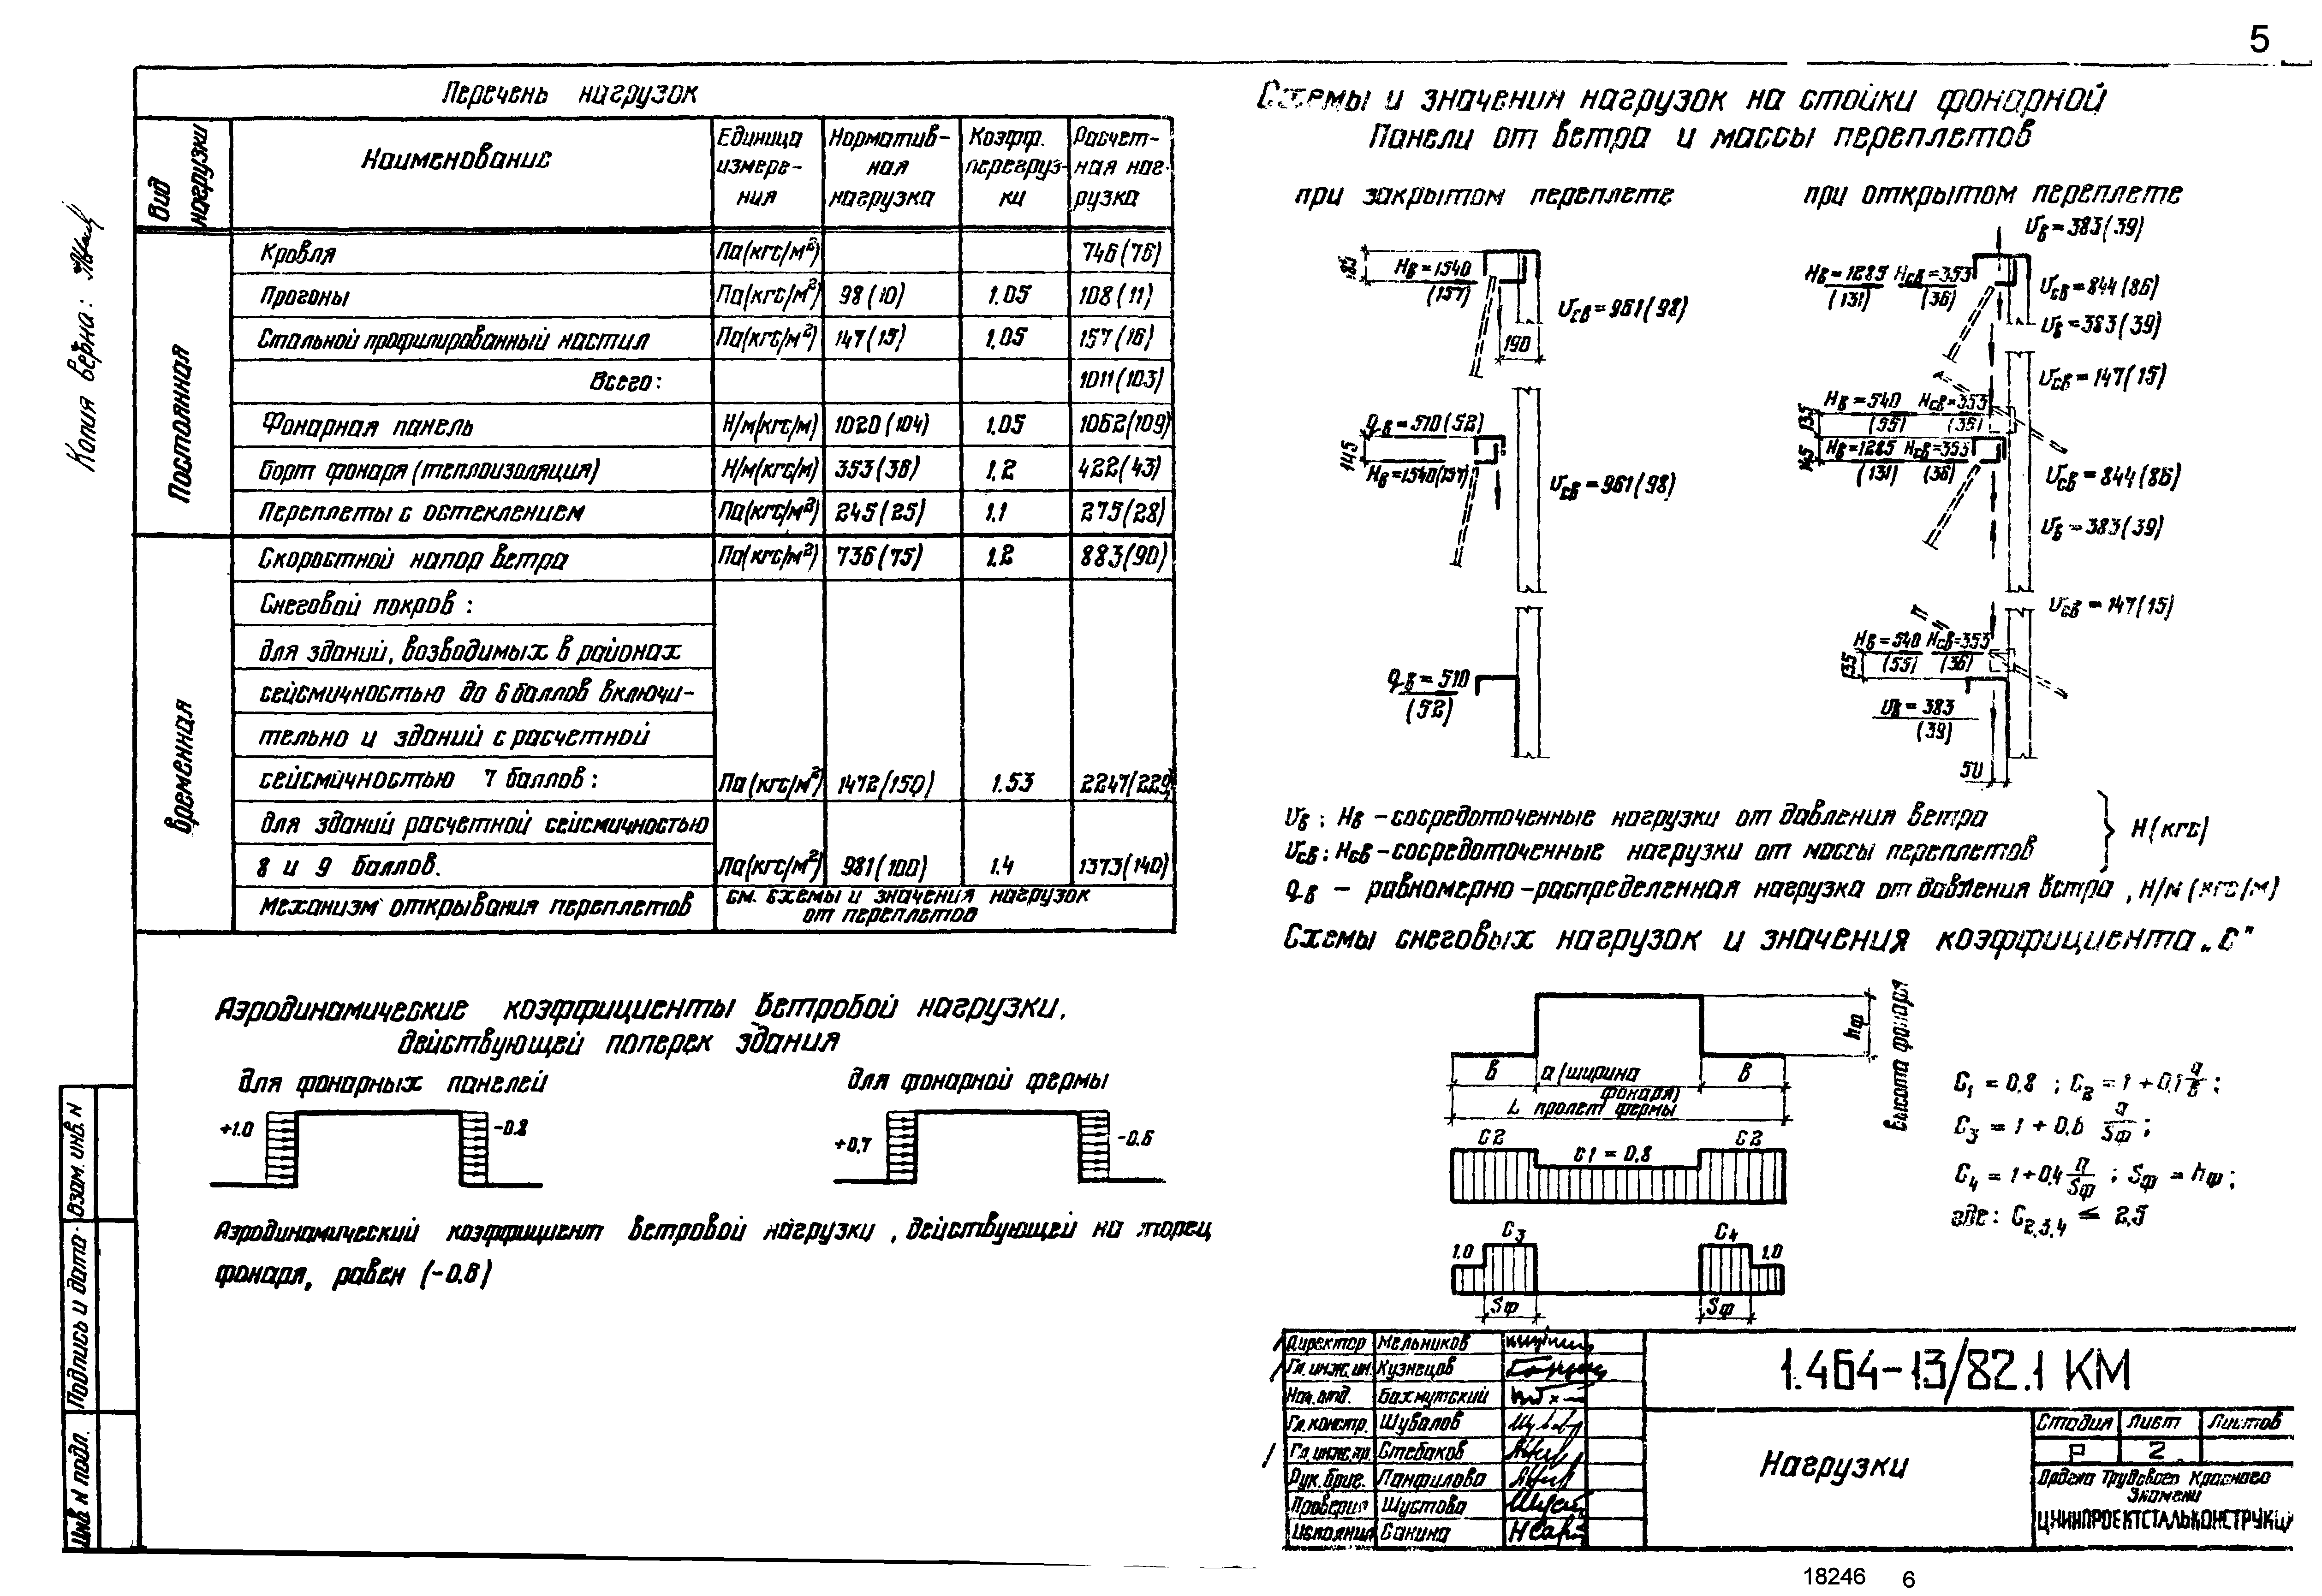 5
Перечень нагрузок
Вид нагрузки
Наименование
Единица измерения
Нормативная нагрузка
Коэфф. перегрузки
Расчетная нагрузка
Постоянная
Кровля Па(кгс/м²) 746(76)
Прогоны Па(кгс/м²) 98(10) 1.05 108(11)
Стальной профилированный настил Па(кгс/м²) 147(15) 1.05 157(16)
Всего: 1011(103)
Фонарная панель Н/м(кгс/м) 1020(104) 1.05 1062(109)
Борт фонаря (теплоизоляция) Н/м(кгс/м) 353(36) 1.2 422(43)
Переплеты с остеклением Па(кгс/м²) 245(25) 1.1 275(28)
Временная
Скоростной напор ветра Па(кгс/м²) 736(75) 1.2 883(90)
Снеговой покров:
для зданий, возводимых в районах
сейсмичностью до 6 баллов включи-
тельно и зданий с расчетной
сейсмичностью 7 баллов: Па(кгс/м²) 1472(150) 1.53 2247(229)
для зданий расчетной сейсмичностью
8 и 9 баллов. Па(кгс/м²) 981(100) 1.4 1373(140)
Механизм открывания переплетов см. схемы и значения нагрузок
от переплетов
Копия верна:
Аэродинамические коэффициенты ветровой нагрузки,
действующей поперек здания
для фонарных панелей
+1.0 -0.8
для фонарной фермы
+0,7 -0.6
Аэродинамический коэффициент ветровой нагрузки, действующей на торец
фонаря, равен (-0.6)
Схемы и значения нагрузок на стойки фонарной
панели от ветра и массы переплетов
при закрытом переплете
185
Hв=1540
(157)
Uсв=961(98)
190
qв=510(52)
145
Hв=1540(157)
Uсв=961(98)
qв=510
(52)
при открытом переплете
Uв=383(39)
Hв=1285 Hсв=353
(131) (36)
Uсв=844(86)
Uв=383(39)
Uсв=147(15)
Hв=540 Hсв=353
(55) (36)
135
Hв=1285 Hсв=353
(131) (36)
145
Uсв=844(86)
Uв=383(39)
Uсв=147(15)
Hв=540 Hсв=353
(55) (36)
135
Uв=383
(39)
50
Uв; Hв - сосредоточенные нагрузки от давления ветра
Uсв; Hсв - сосредоточенные нагрузки от массы переплетов
Н(кгс)
qв - равномерно-распределенная нагрузка от давления ветра, Н/м (кгс/м)
Схемы снеговых нагрузок и значения коэффициента „С"
hф
высота фонаря
в а(ширина в
фонаря)
L пролет фермы
C2 C1=0,8 C2
C3 C4
1.0 1.0
Sф Sф
C1 = 0,8; C2 = 1 + 0,1 а/в;
C3 = 1 + 0.6 а/Sф;
C4 = 1 + 0,4 а/Sф; Sф = hф;
где: C2,3,4 ≤ 2,5
Директор Мельников
Гл. инж. ин. Кузнецов
Нач. отд. Бахмутский
Гл. констр. Шувалов
Гл. инж. пр. Стебаков
Рук. бриг. Панфилова
Проверил Шустова
Исполнил Санина
1.464-13/82.1 КМ
Нагрузки
Стадия Лист Листов
Р 2
Ордена Трудового Красного
Знамени
ЦНИИПРОЕКТСТАЛЬКОНСТРУКЦИ
Взам. инв. N
Подпись и дата
Инв. N подл.
18246 6